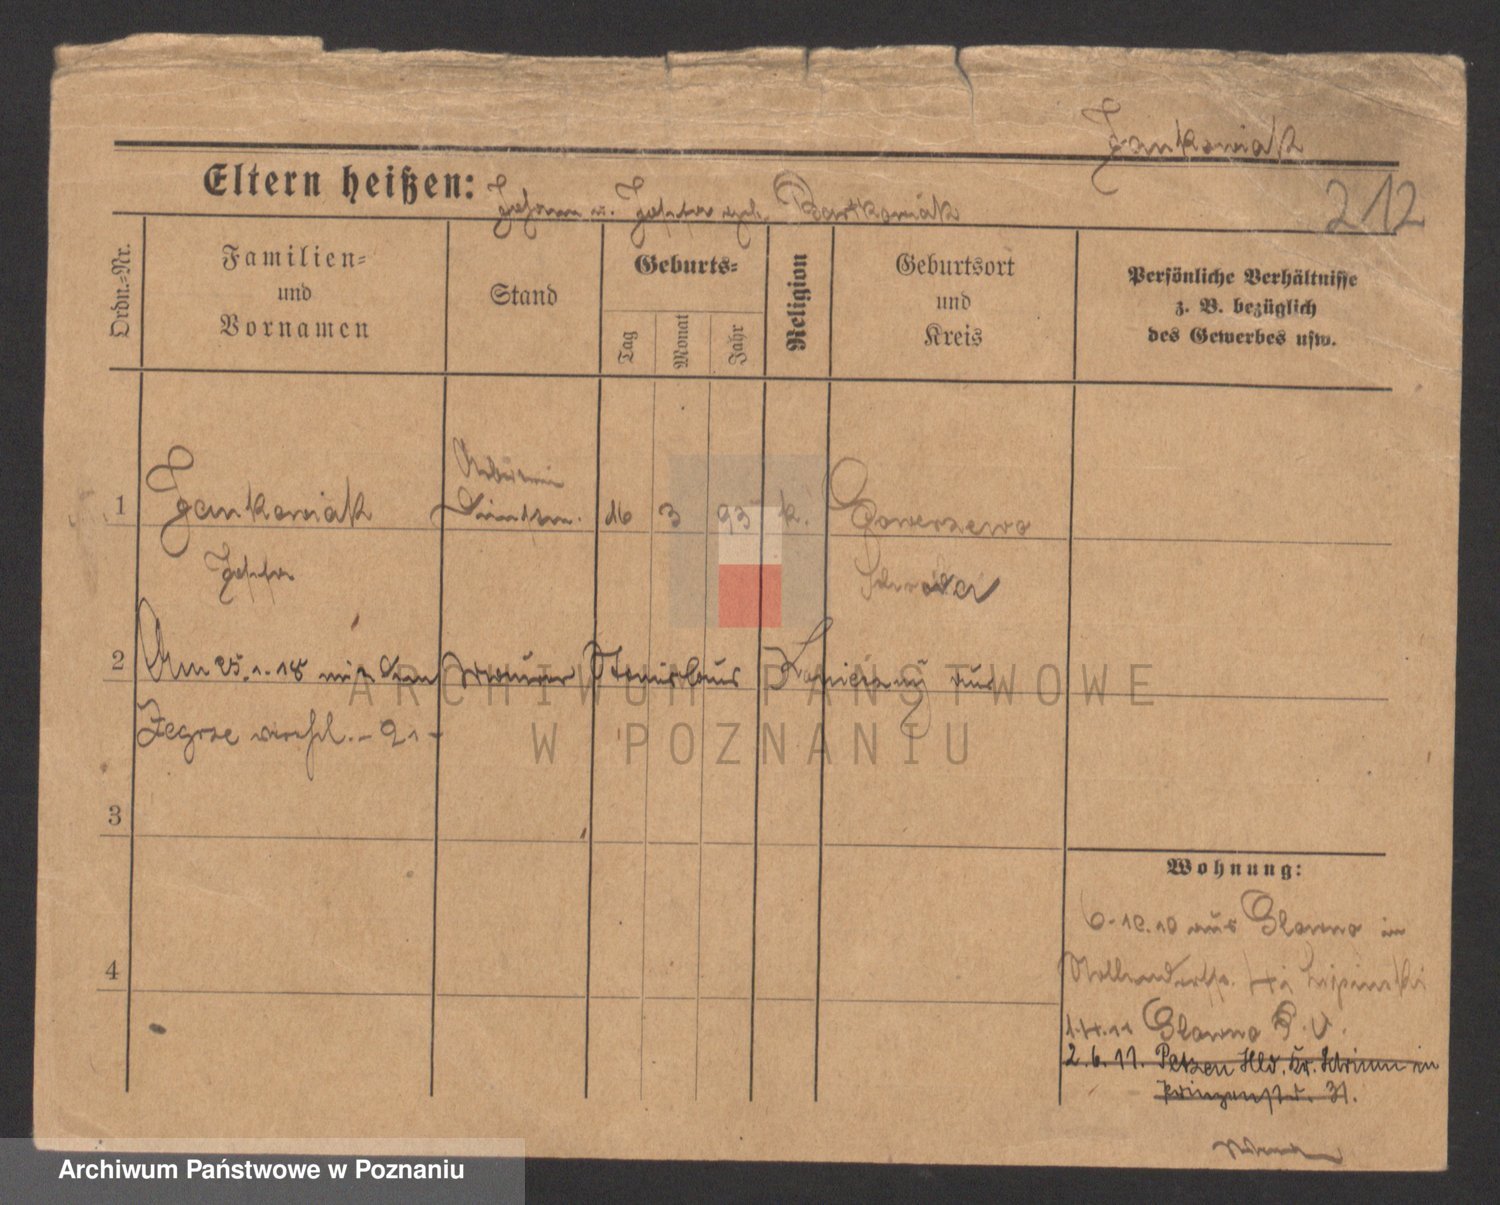 Jankowiak
Eltern heißen: Johann u. Josefa geb. Bartkowiak
212
Ordn.=Nr.
Familien=
und
Vornamen
Stand
Geburts=
Tag
Monat
Jahr
Religion
Geburtsort
und
Kreis
Persönliche Verhältnisse
z. B. bezüglich
des Gewerbes usw.
Arbeiterin
1 Jankowiak 16 3 93 k. Gowarzewo
Josefa Schroda
2 Am 25. 1. 18 mit dem Maurer Stanislaus aus
Zegrze verehl. - 21 -
3
4
Wohnung:
6.10.10 aus Glowno in
bei Lipinski
1.4.11 Glowno P.
2.6.11. Petzen Hld. Kr. Schrimm in
Prinzenstr. 31.
ARCHIWUM PAŃSTWOWE
W POZNANIU
Archiwum Państwowe w Poznaniu